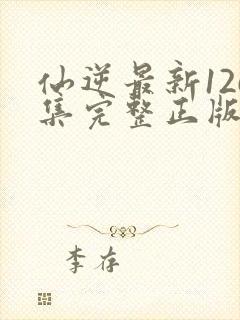 仙逆最新12
集完整正版
李存